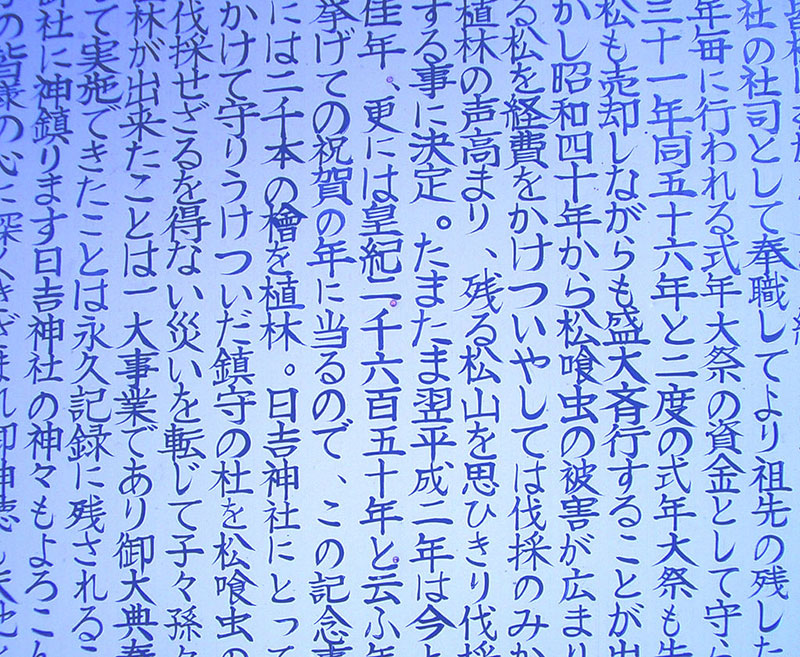 社の社司として奉職してより祖先の残した
年毎に行われる式年大祭の資金として守ら
三十一年同五十六年と二度の式年大祭も
松も売却しながらも盛大斉行することが出
かし昭和四十年から松喰虫の被害が広まり
る松を経費をかけついやしては伐採のみか
植林の声高まり、残る松山を思ひきり伐採
する事に決定。たまたま翌平成二年は今
佳年、更には皇紀二千六百五十年と云ふ年
挙げての祝賀の年に当るので、この記念事
には二千本の檜を植林。日吉神社にとって
かけて守りうけついだ鎮守の杜を松喰虫の
伐採せざるを得ない災いを転じて子々孫々
林が出来たことは一大事業であり御大典奉
て実施できたことは永久記録に残されるこ
社に神鎮ります日吉神社の神々もよろこん
の皆様の心に深くきざまれ御神徳も